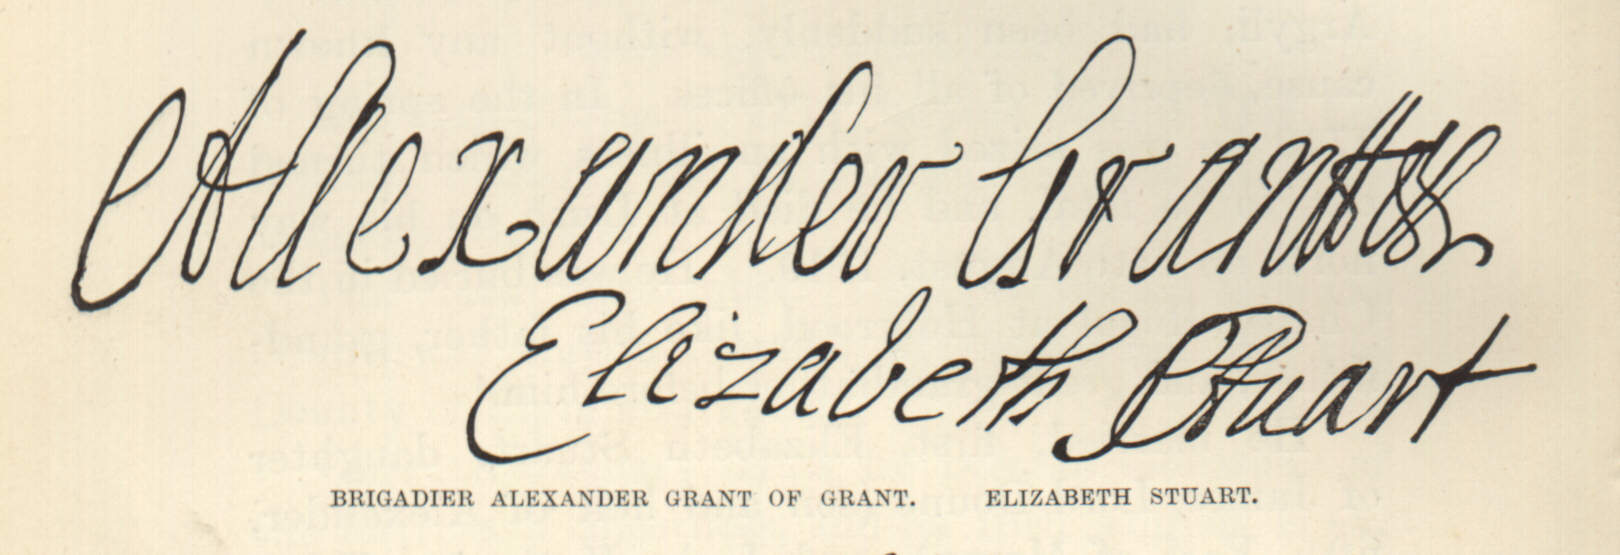 Alexander Grant
Elizabeth Stuart
BRIGADIER ALEXANDER GRANT OF GRANT. ELIZABETH STUART.